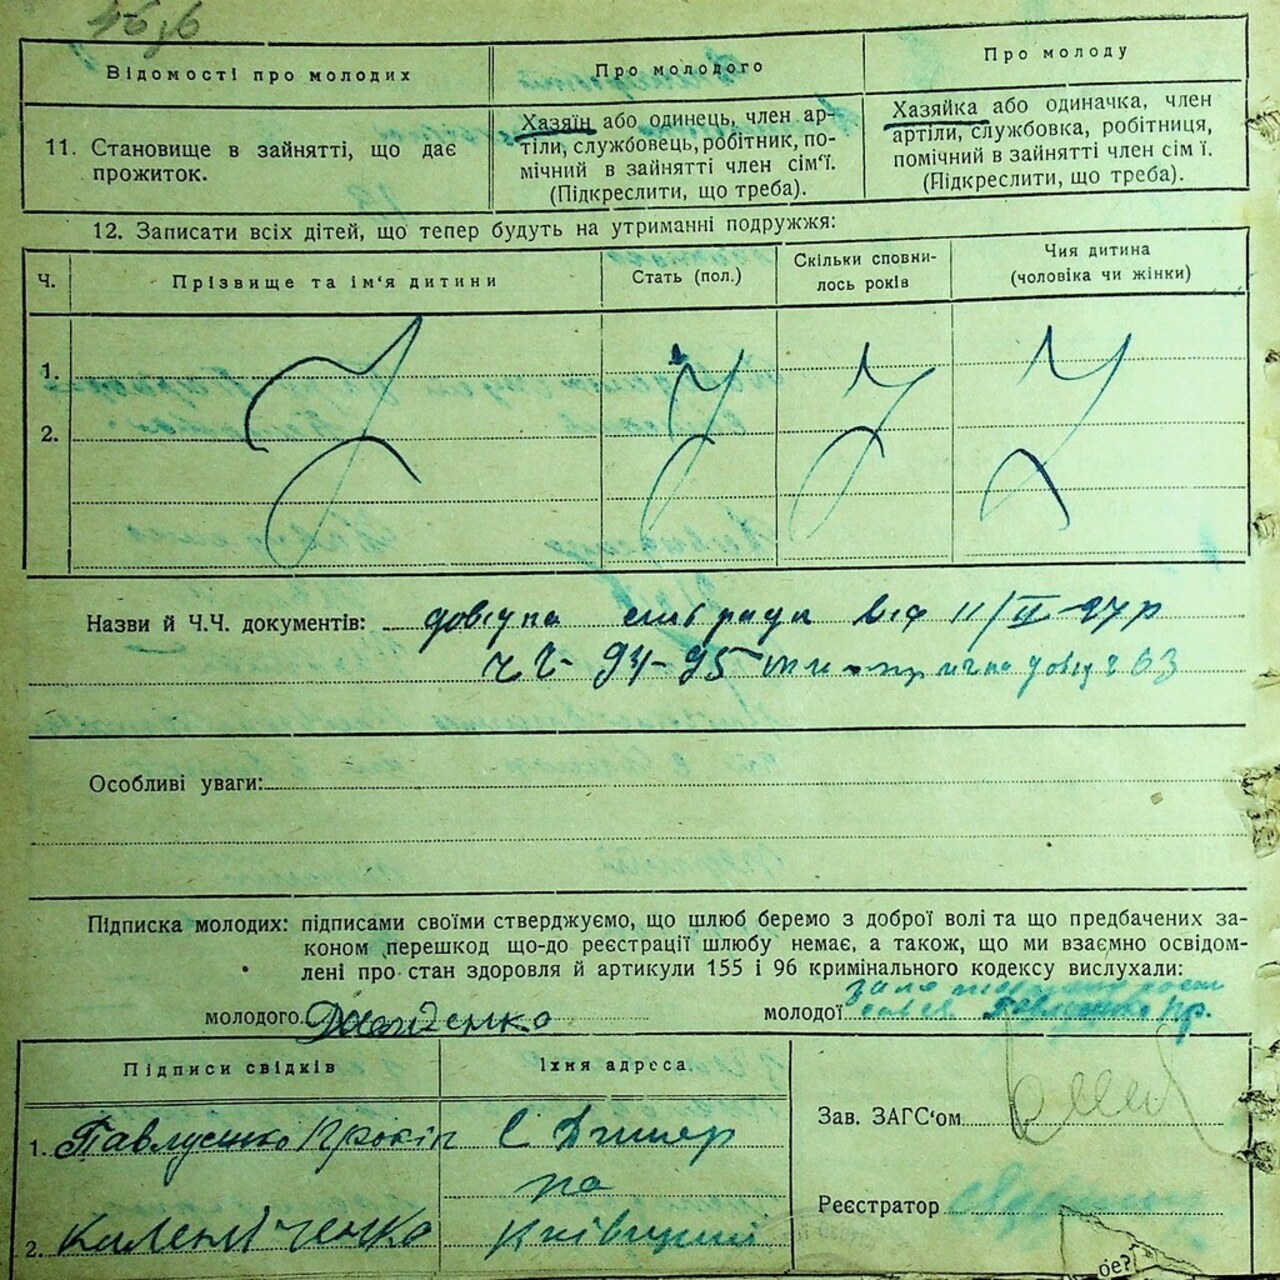 Відомості про молодих
Про молодого
Про молоду
11. Становище в зайнятті, що дає
прожиток.
Хазяїн або одинець, член ар-
тілі, службовець, робітник, по-
мічний в зайнятті член сім'ї.
(Підкреслити, що треба).
Хазяйка або одиначка, член
артіли, службовка, робітниця,
помічний в зайнятті член сім ї.
(Підкреслити, що треба).
12. Записати всіх дітей, що тепер будуть на утриманні подружжя:
Ч.
Прізвище та ім'я дитини
Стать (пол.)
Скільки сповни-
лось років
Чия дитина
(чоловіка чи жінки)
1.
2.
Назви й Ч.Ч. документів: сельради від 11/II-27р
94-95 63
Особливі уваги:
Підписка молодих: підписами своїми стверджуємо, що шлюб беремо з доброї волі та що предбачених за-
коном перешкод що-до реєстрації шлюбу немає, а також, що ми взаємно освідом-
лені про стан здоровля й артикули 155 і 96 кримінального кодексу вислухали:
молодого
молодої Павлусенко Пр.
Підписи свідків
Їхня адреса
1. Павлусенко Прокіп
2.
Зав. ЗАГС'ом
Реєстратор
ое?